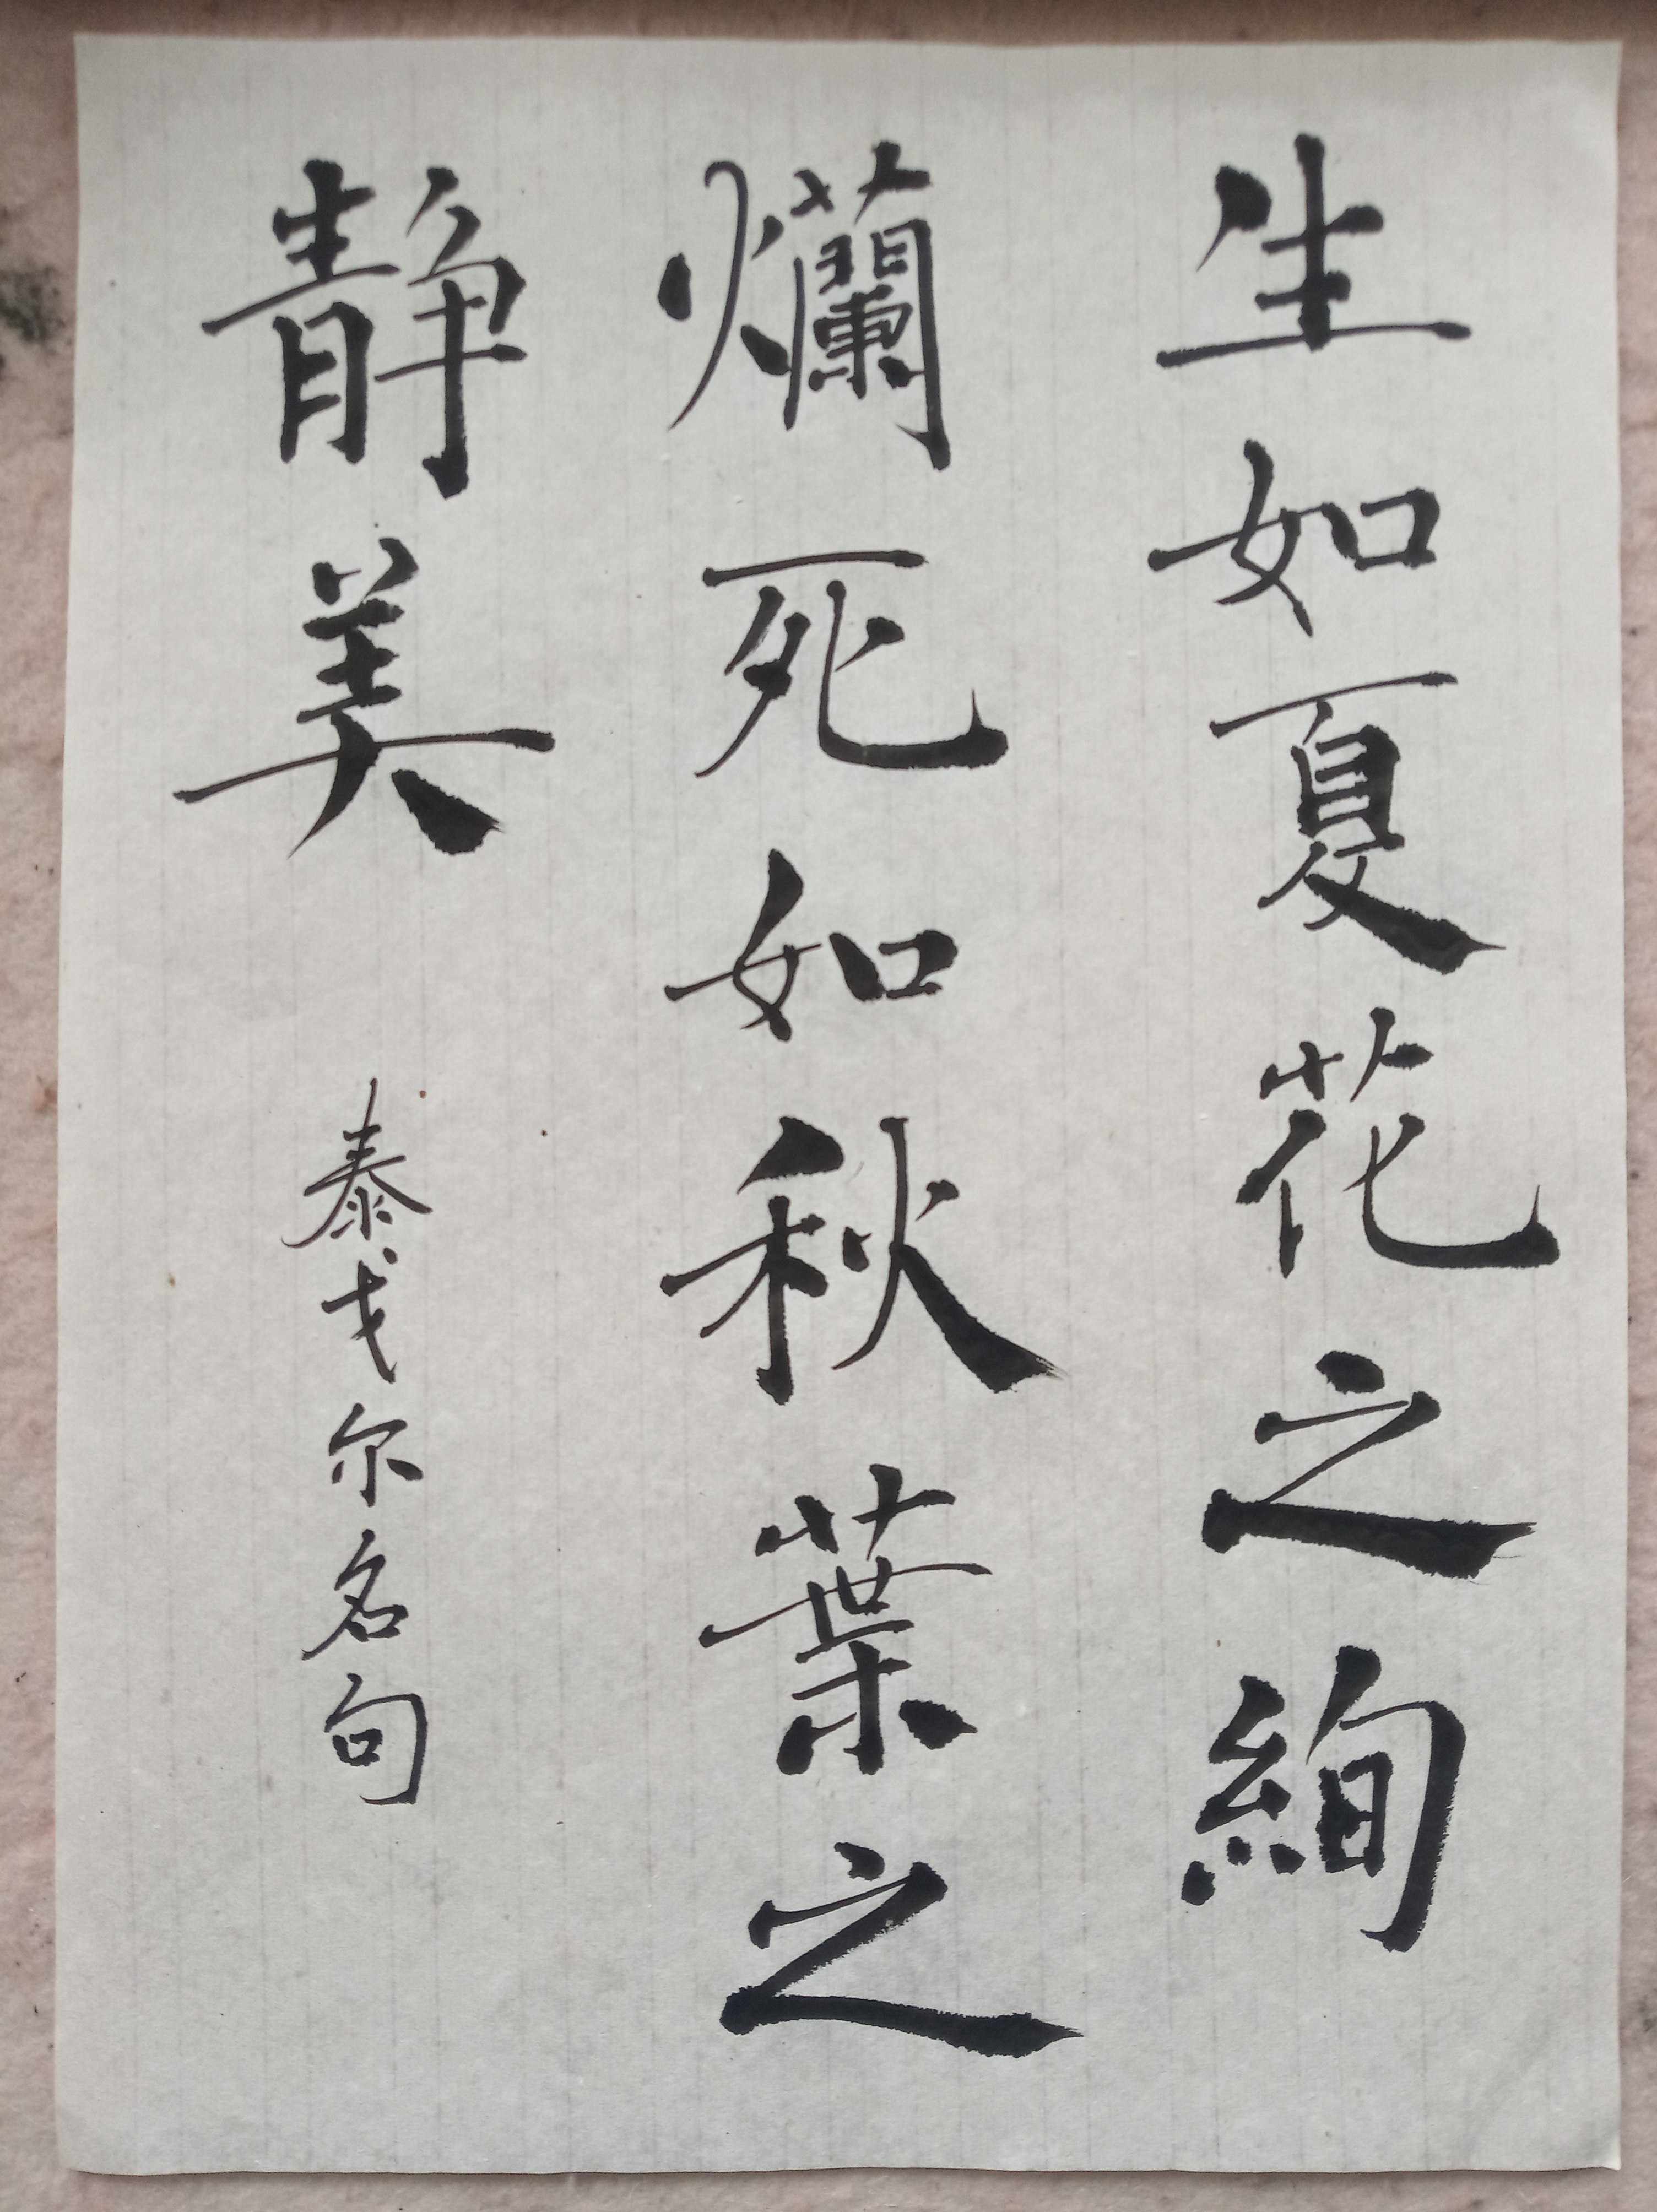 生如夏花之絢
爛死如秋葉之
静美 泰戈尔名句